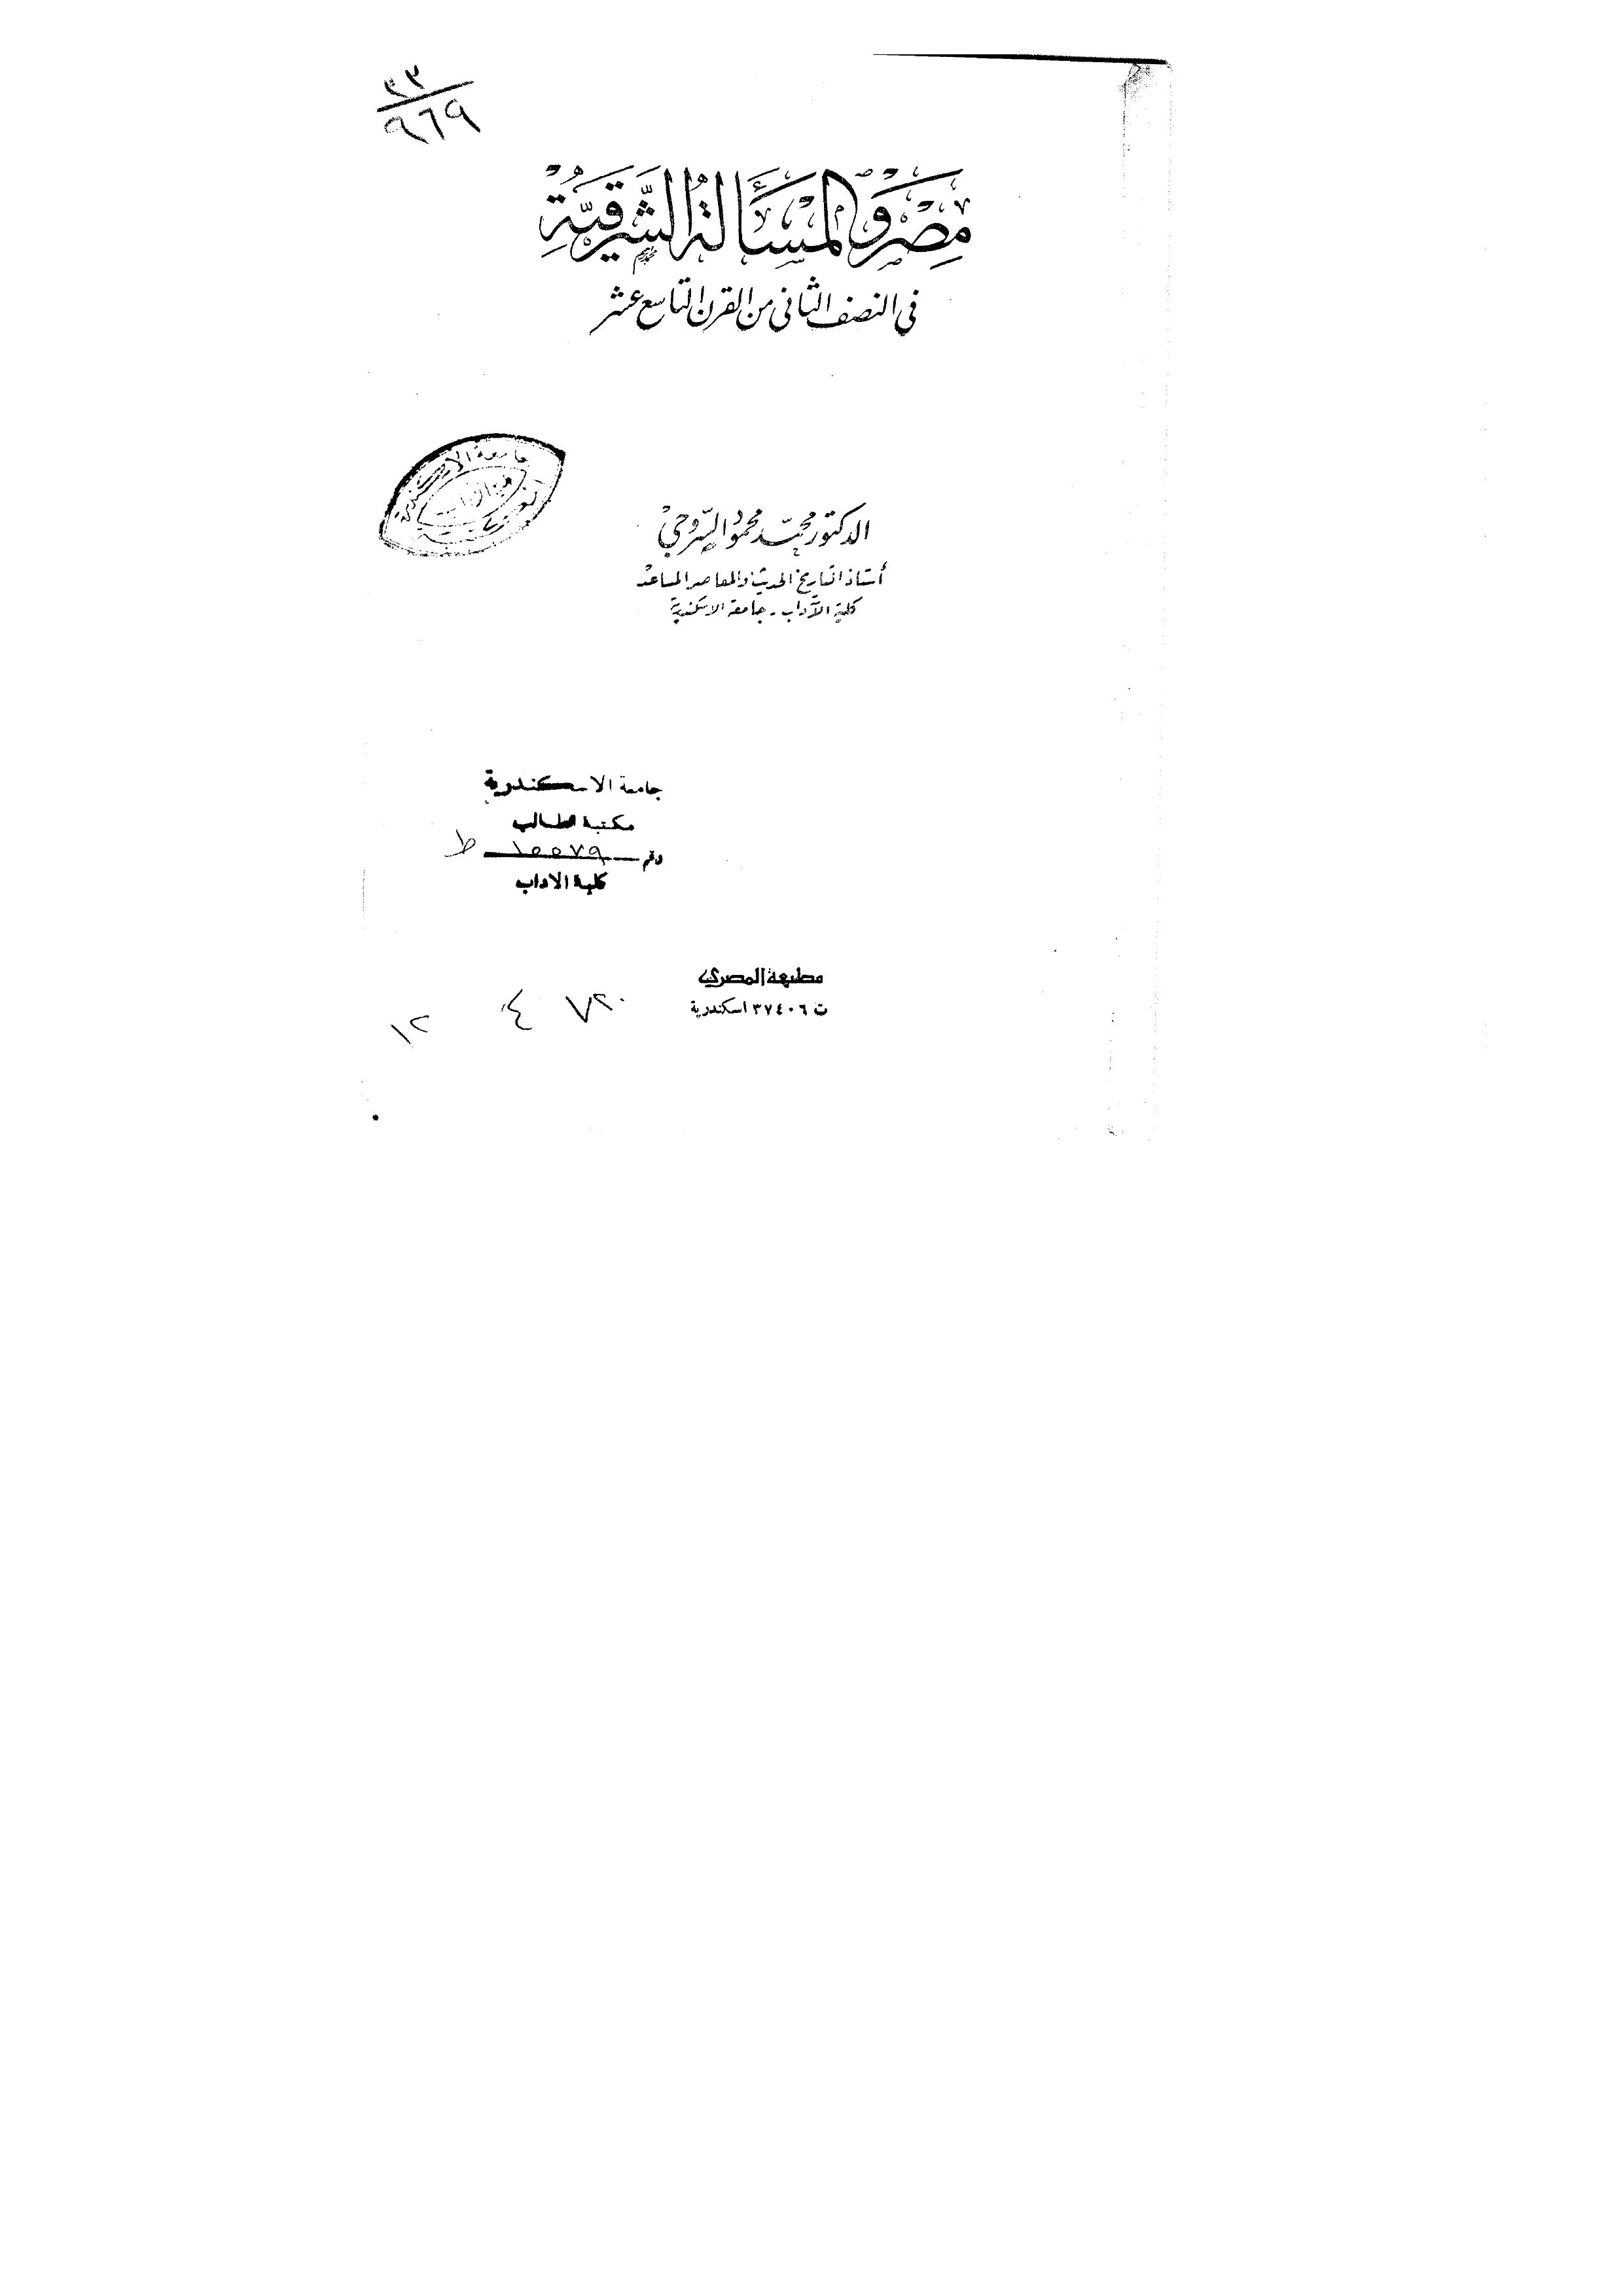 ٣٣
٩٦٩
مِصْر وَالمسْأَلة الشَّرقيَّة
في النصف الثاني من القرن التاسع عشر
جامعة الاسكندرية
الدكتور محمّد محمود السّروجي
أستاذ التاريخ الحديث والمعاصر المساعد
كلية الآداب - جامعة الاسكندرية
جامعة الاسكندرية
مكتبة الطالب
رقم ١٥٥٧٩ ط
كلية الاداب
مطبعة المصري
ت ٣٧٤٠٦ اسكندرية
٧٢٠ ٤ ١٢